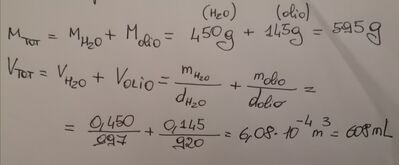 (H₂O) (olio)
M_TOT = M_H₂O + M_olio = 450g + 145g = 595g
V_TOT = V_H₂O + V_OLIO = m_H₂O/d_H₂O + m_olio/d_olio =
= 0,450/997 + 0,145/920 = 6,08·10⁻⁴ m³ = 608mL